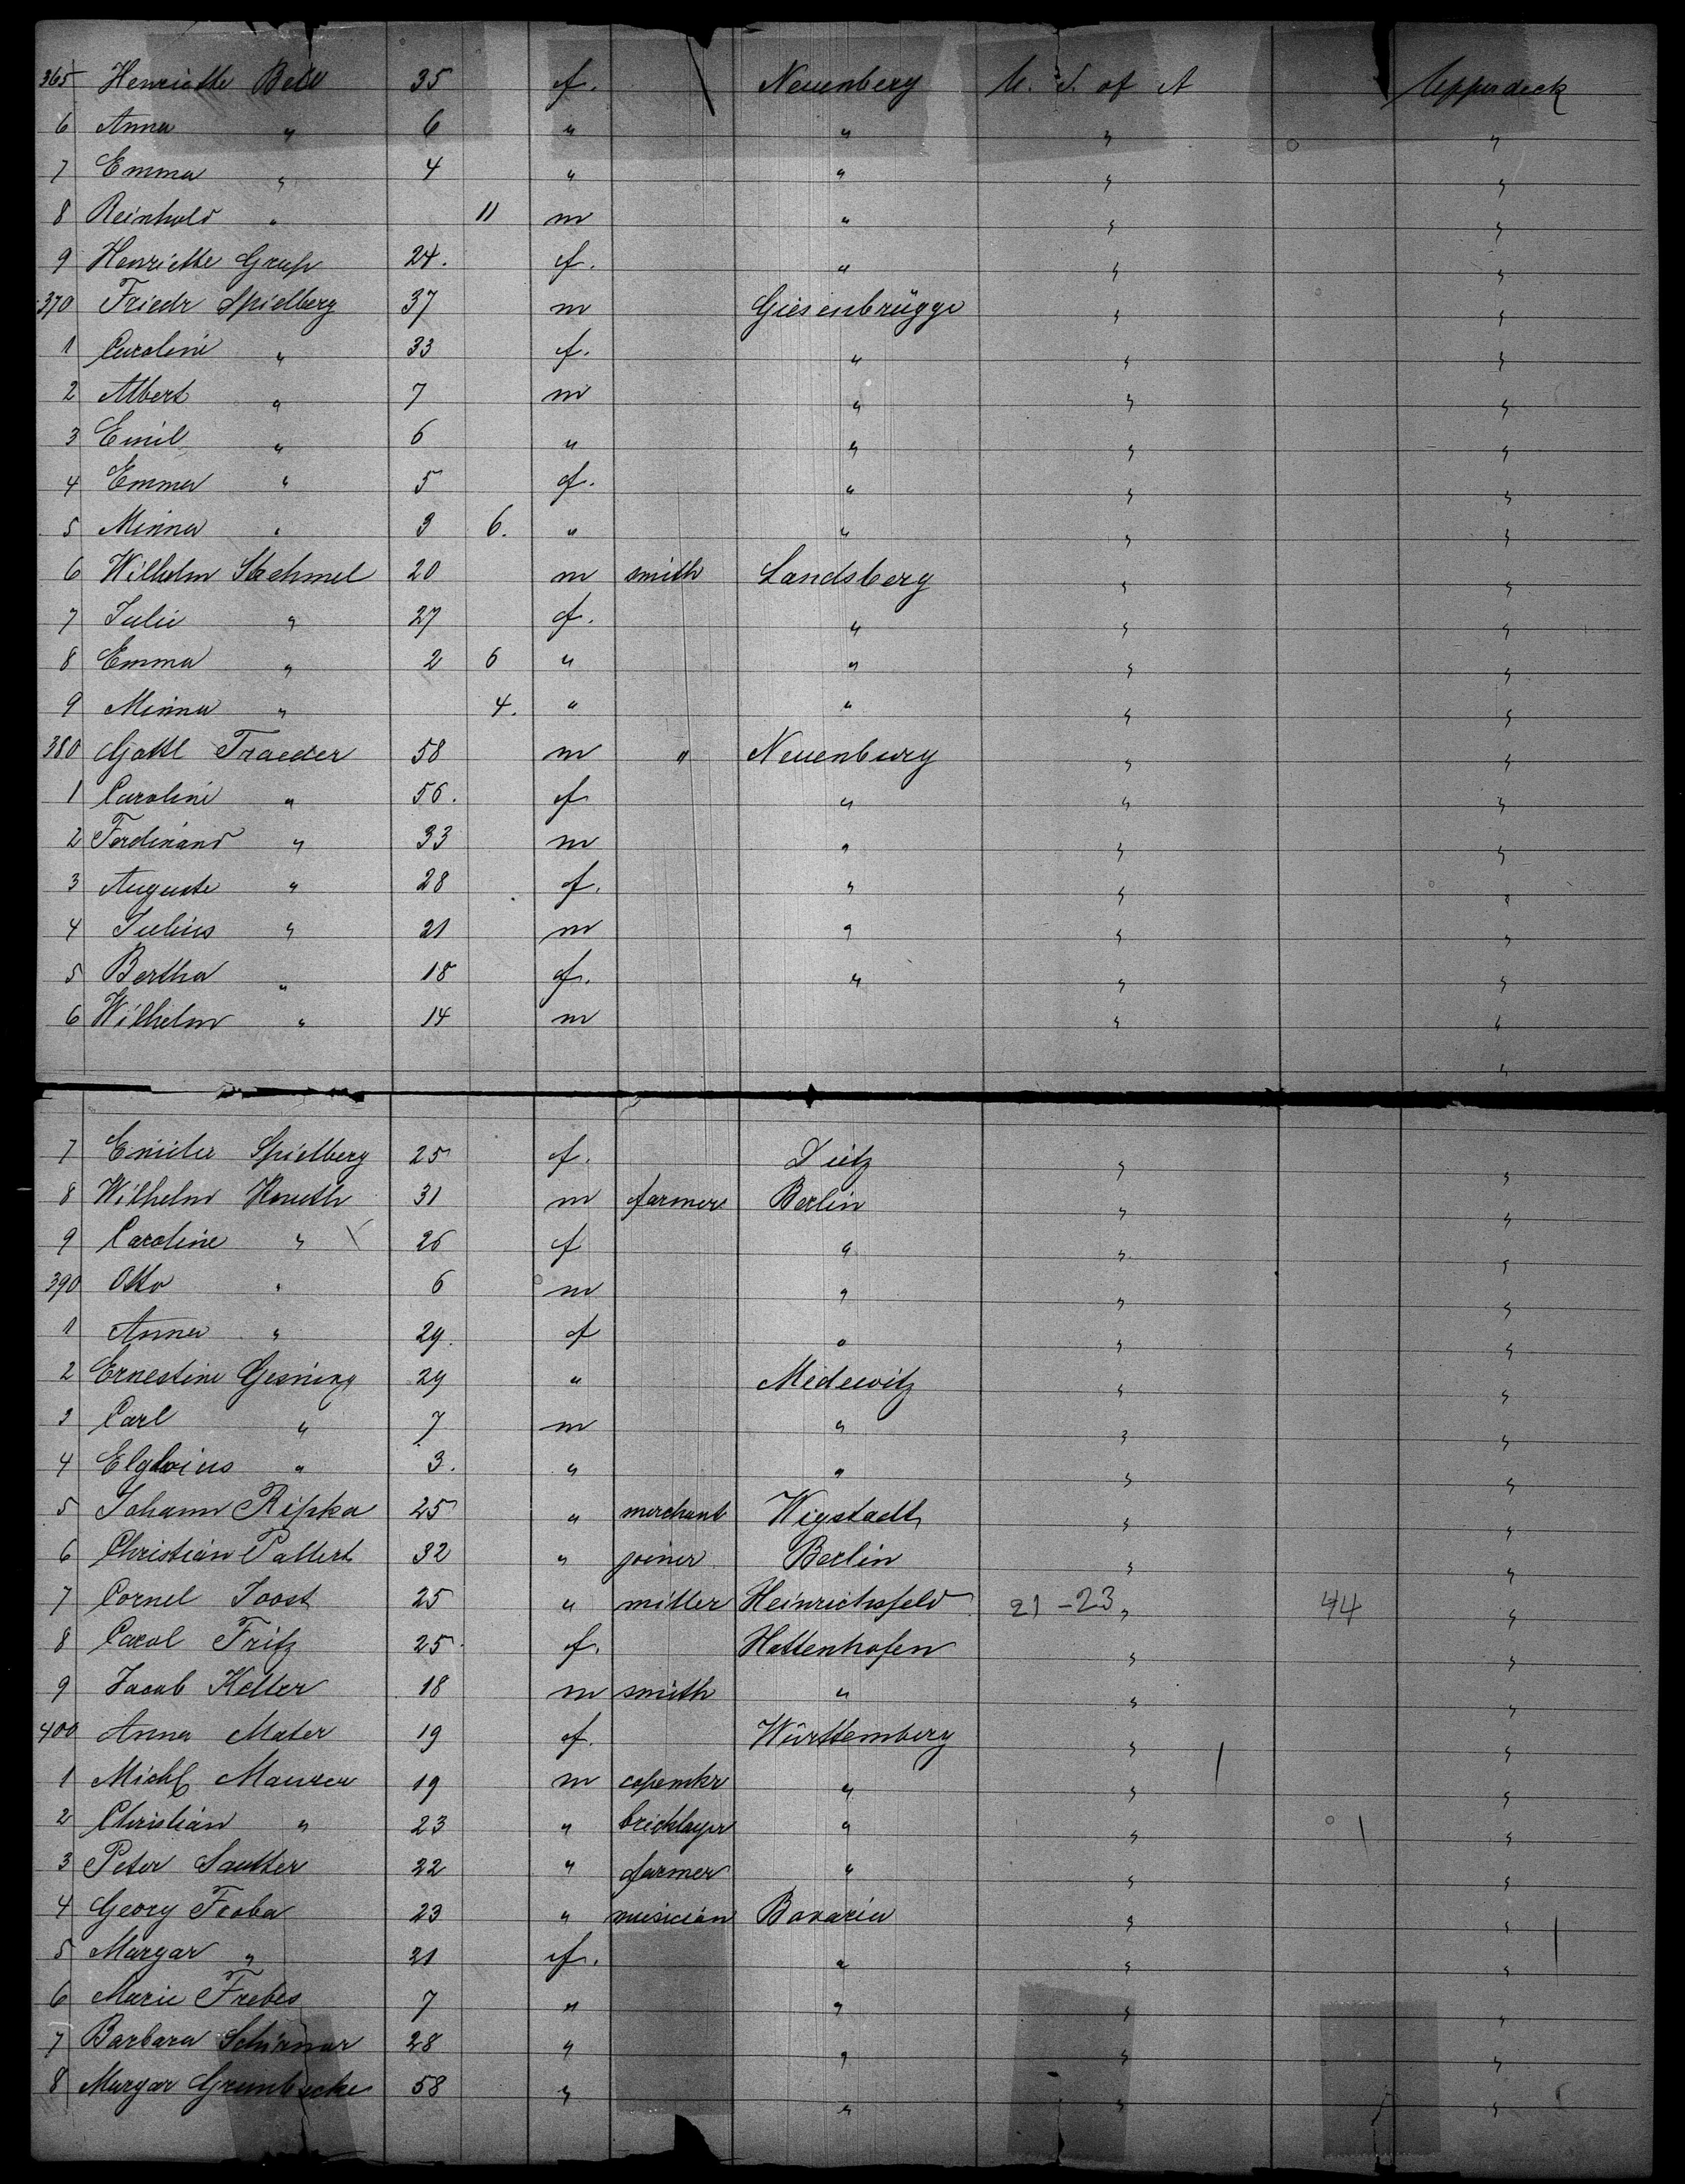 365 Henriette 35 f. Neuenberg U. S. of A Upperdeck
6 Anna " 6 " " " "
7 Emma " 4 " " " "
8 Reinhold " 11 m " " "
9 Henriette 24. f. " " "
370 Friedr Spielberg 37 m Giesenbrügge " "
1 Caroline " 33 f. " " "
2 Albert " 7 m " " "
3 Emil " 6 " " " "
4 Emma " 5 f. " " "
5 Minna " 3 6. " " " "
6 Wilhelm Stechmel 20 m smith Landsberg " "
7 Julie " 27 f. " " "
8 Emma " 2 6 " " " "
9 Minna " 4. " " " "
380 Gottl Traeder 58 m " Neuenburg " "
1 Caroline " 56. f " " "
2 Ferdinand " 33 m " " "
3 Auguste " 28 f. " " "
4 Julius " 21 m " " "
5 Bertha " 18 f. " " "
6 Wilhelm " 14 m " "
"
7 Spielberg 25 f. " "
8 Wilhelm 31 m farmer Berlin " "
9 Caroline " 26 f " " "
390 Otto " 6 m " " "
1 Anna " 29. f " " "
2 Ernestine Gesning 29 " Medewitz " "
3 Carl " 7 m " " "
4 " 3. " " " "
5 Johann Ripka 25 " merchant Wigstadt " "
6 Christian Pallert 32 " joiner Berlin " "
7 Cornel Joost 25 " miller Heinrichsfeld 21-23 " 44 "
8 Carol Fritz 25. f. Hattenhofen " "
9 Jacob Keller 18 m smith " " "
400 Anna Mater 19 f. Württemberg " "
1 Michl Maurer 19 m " " "
2 Christian " 23 " bricklayer " " "
3 Peter Sautter 22 " farmer " " "
4 Georg Froba 23 " musician Bavaria " "
5 Margar " 21 f. " " "
6 Marie Frebes 7 " " " "
7 Barbara Schirmer 28 " " " "
8 Margar 58 " " " "